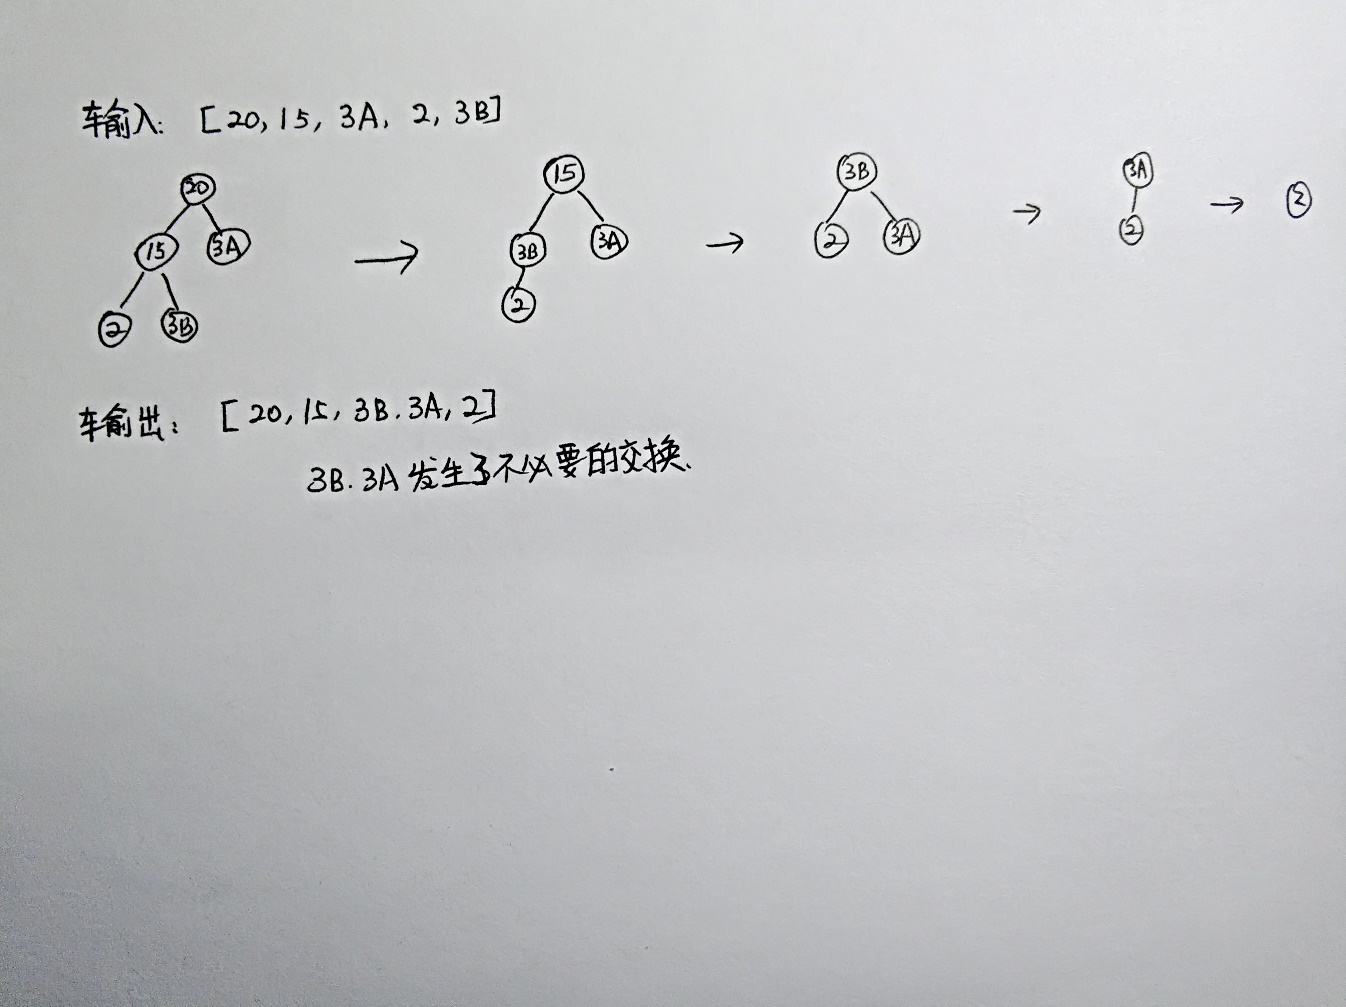 输入: [20, 15, 3A, 2, 3B]
20 15 3B 3A
15 3A 3B 3A 2
2 3B 2 2 3A 2
输出: [20, 15, 3B. 3A, 2]
3B. 3A 发生了不必要的交换.